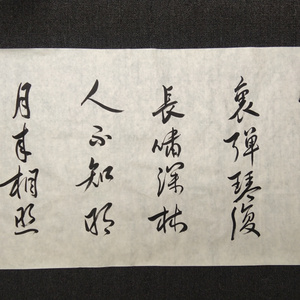 裏彈琴復
長嘯深林
人不知明
月來相照